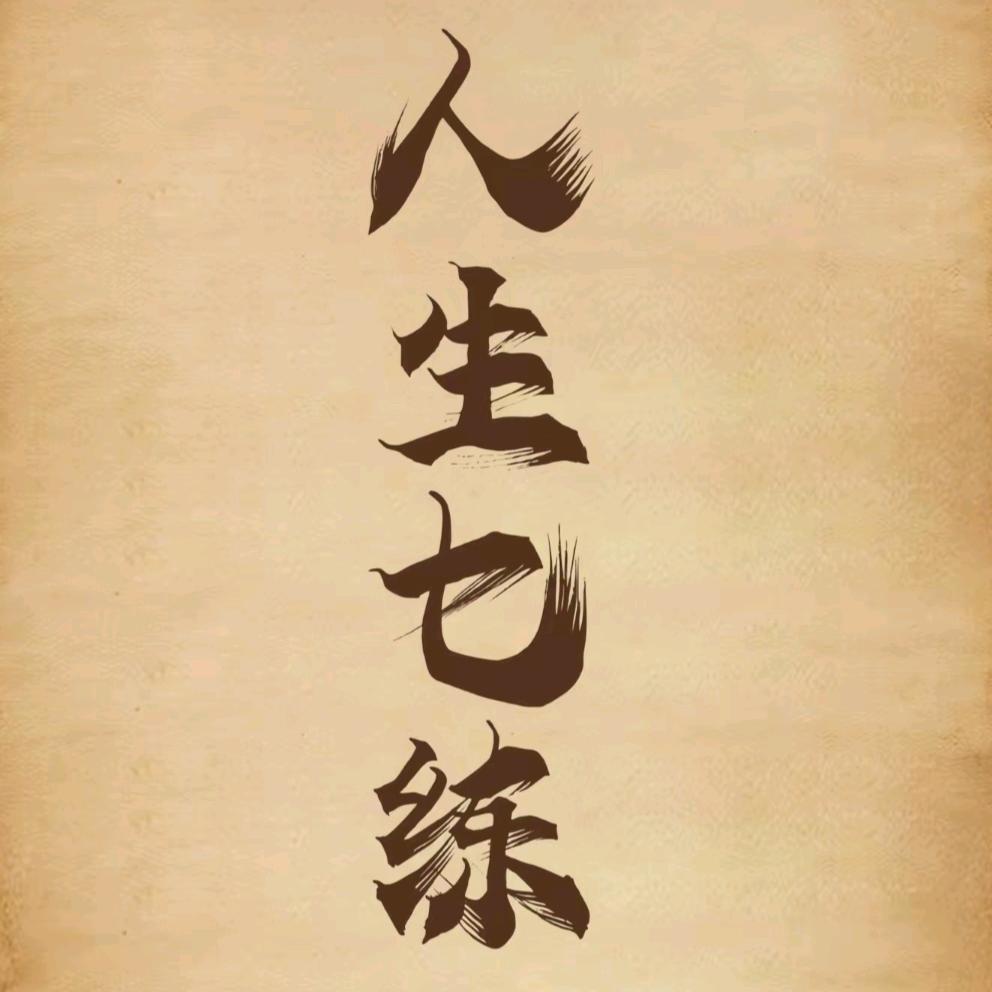 人生七练